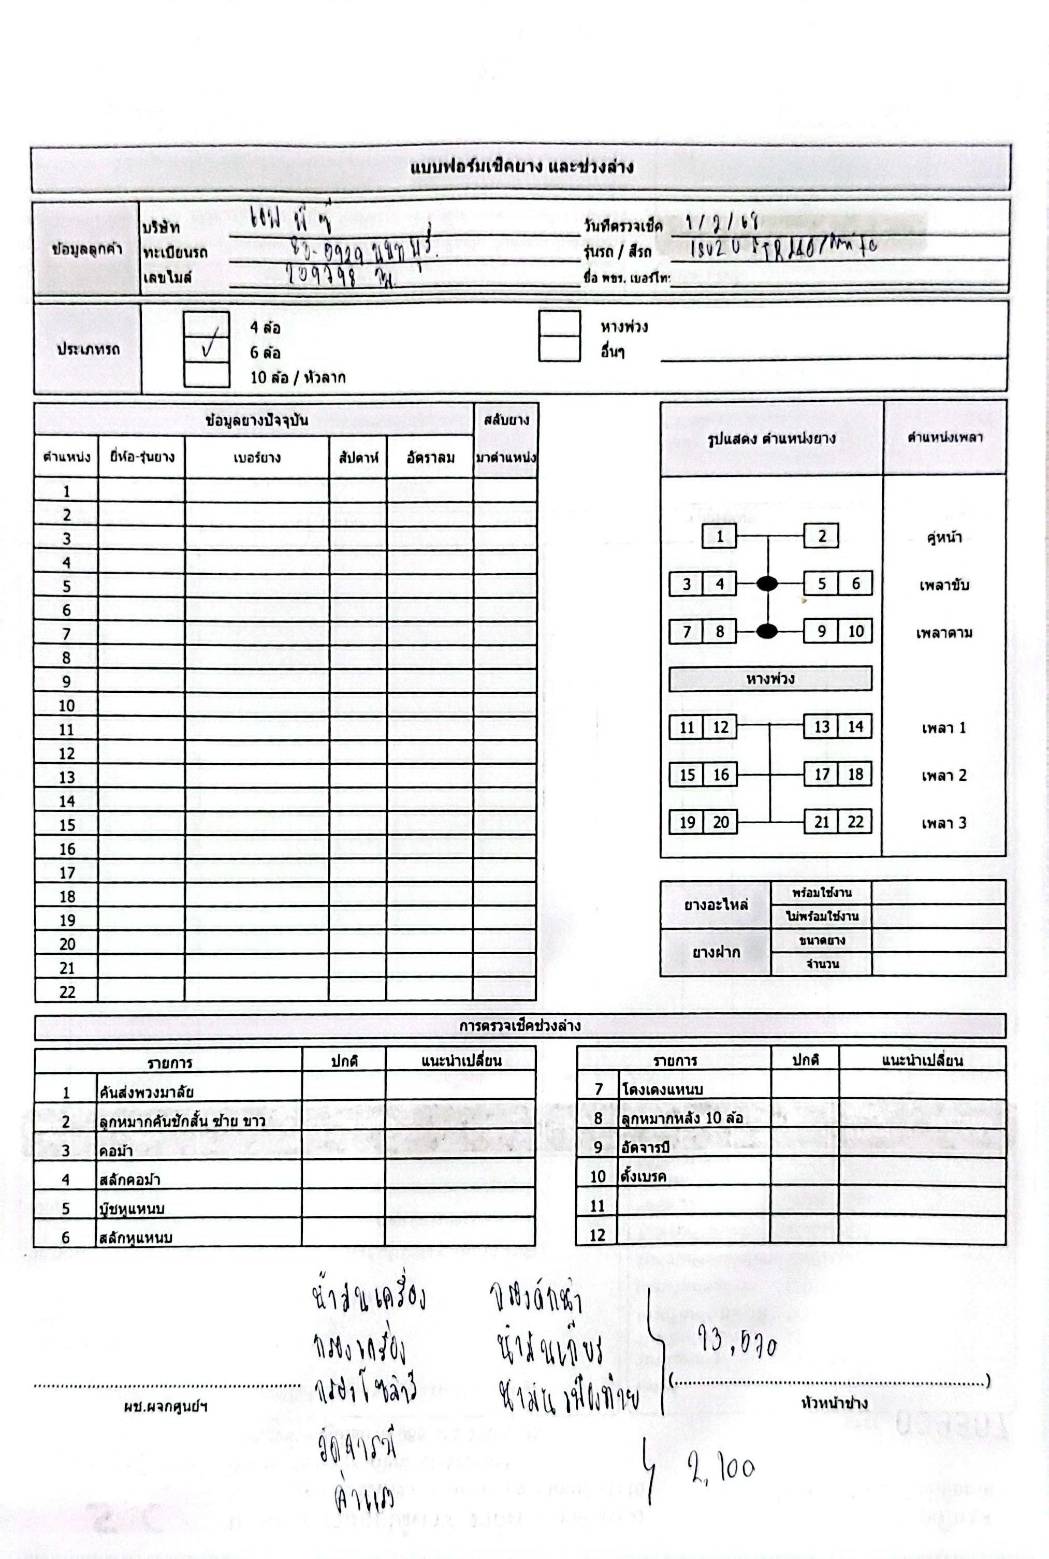 แบบฟอร์มเช็คยาง และช่วงล่าง
ข้อมูลลูกค้า
บริษัท เอฟ พี ซี
ทะเบียนรถ 83-0929
เลขไมล์ 209798
วันที่ตรวจเช็ค 1/2/68
รุ่นรถ / สีรถ ISUZU FTR240/
ชื่อ พขร. เบอร์โทร
ประเภทรถ
4 ล้อ
✓ 6 ล้อ
10 ล้อ / หัวลาก
หางพ่วง
อื่นๆ
ข้อมูลยางปัจจุบัน สลับยาง
ตำแหน่ง ยี่ห้อ-รุ่นยาง เบอร์ยาง สัปดาห์ อัตราลม มาตำแหน่ง
1
2
3
4
5
6
7
8
9
10
11
12
13
14
15
16
17
18
19
20
21
22
รูปแสดง ตำแหน่งยาง ตำแหน่งเพลา
1 2 คู่หน้า
3 4 5 6 เพลาขับ
7 8 9 10 เพลาตาม
หางพ่วง
11 12 13 14 เพลา 1
15 16 17 18 เพลา 2
19 20 21 22 เพลา 3
ยางอะไหล่ พร้อมใช้งาน
ไม่พร้อมใช้งาน
ยางฝาก ขนาดยาง
จำนวน
การตรวจเช็คช่วงล่าง
รายการ ปกติ แนะนำเปลี่ยน
1 คันส่งพวงมาลัย
2 ลูกหมากคันชักสั้น ซ้าย ขาว
3 คอม้า
4 สลักคอม้า
5 บู๊ชหูแหนบ
6 สลักหูแหนบ
รายการ ปกติ แนะนำเปลี่ยน
7 โตงเตงแหนบ
8 ลูกหมากหลัง 10 ล้อ
9 อัดจารบี
10 ตั้งเบรค
11
12
น้ำมันเครื่อง กรองดักน้ำ
กรองเครื่อง น้ำมันเกียร์ 13,570
กรองโซล่า น้ำมันเฟืองท้าย
ผช.ผจกศูนย์ฯ
(....................) หัวหน้าช่าง
อัดจารบี
ค่าแรง 2,100